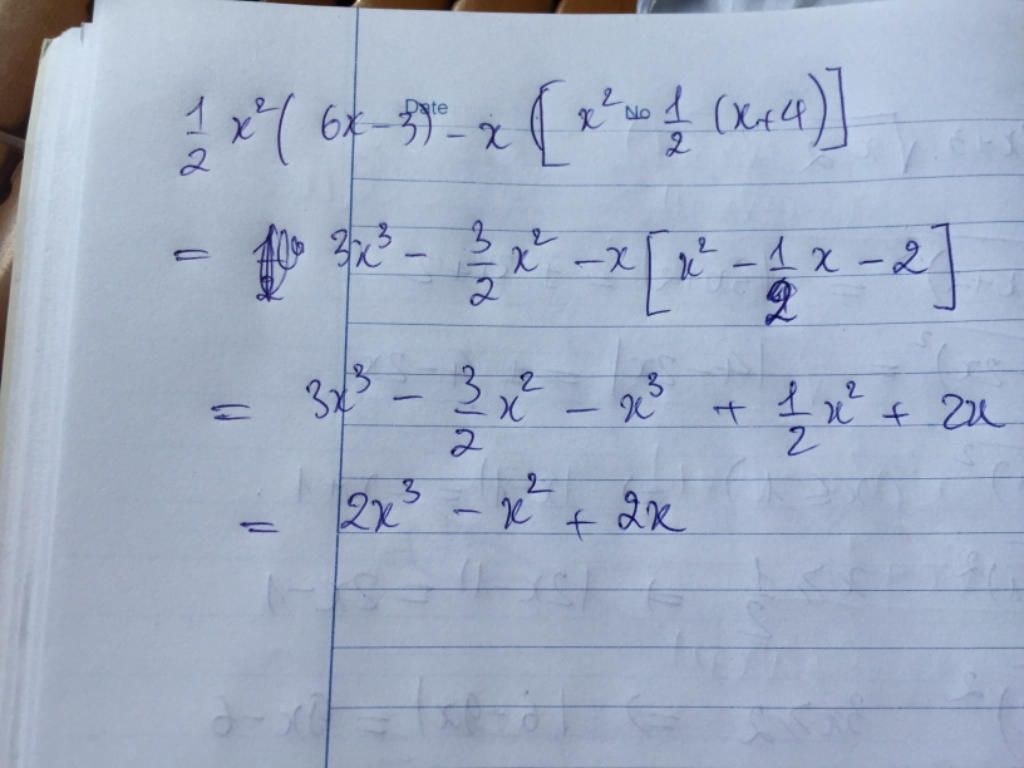 Date No
1/2 x² ( 6x - 3) - x [ x² - 1/2 (x+4) ]
= 3x³ - 3/2 x² - x [ x² - 1/2 x - 2 ]
= 3x³ - 3/2 x² - x³ + 1/2 x² + 2x
= 2x³ - x² + 2x